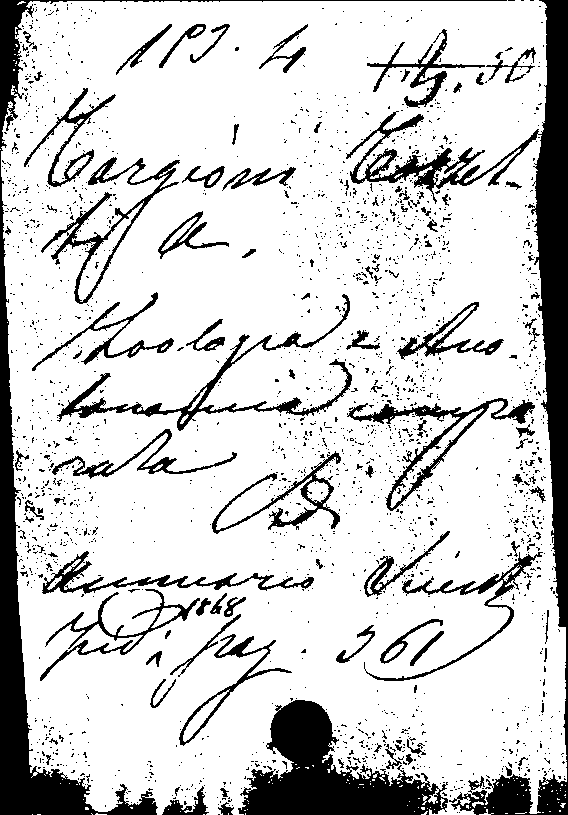 193. 4 1.9.50
Targioni Tozzet-
ti A.
Zoologia e Ana-
tonomia compa
rata
Vedi
Annuario Scient
ifico 1868 pag. 361